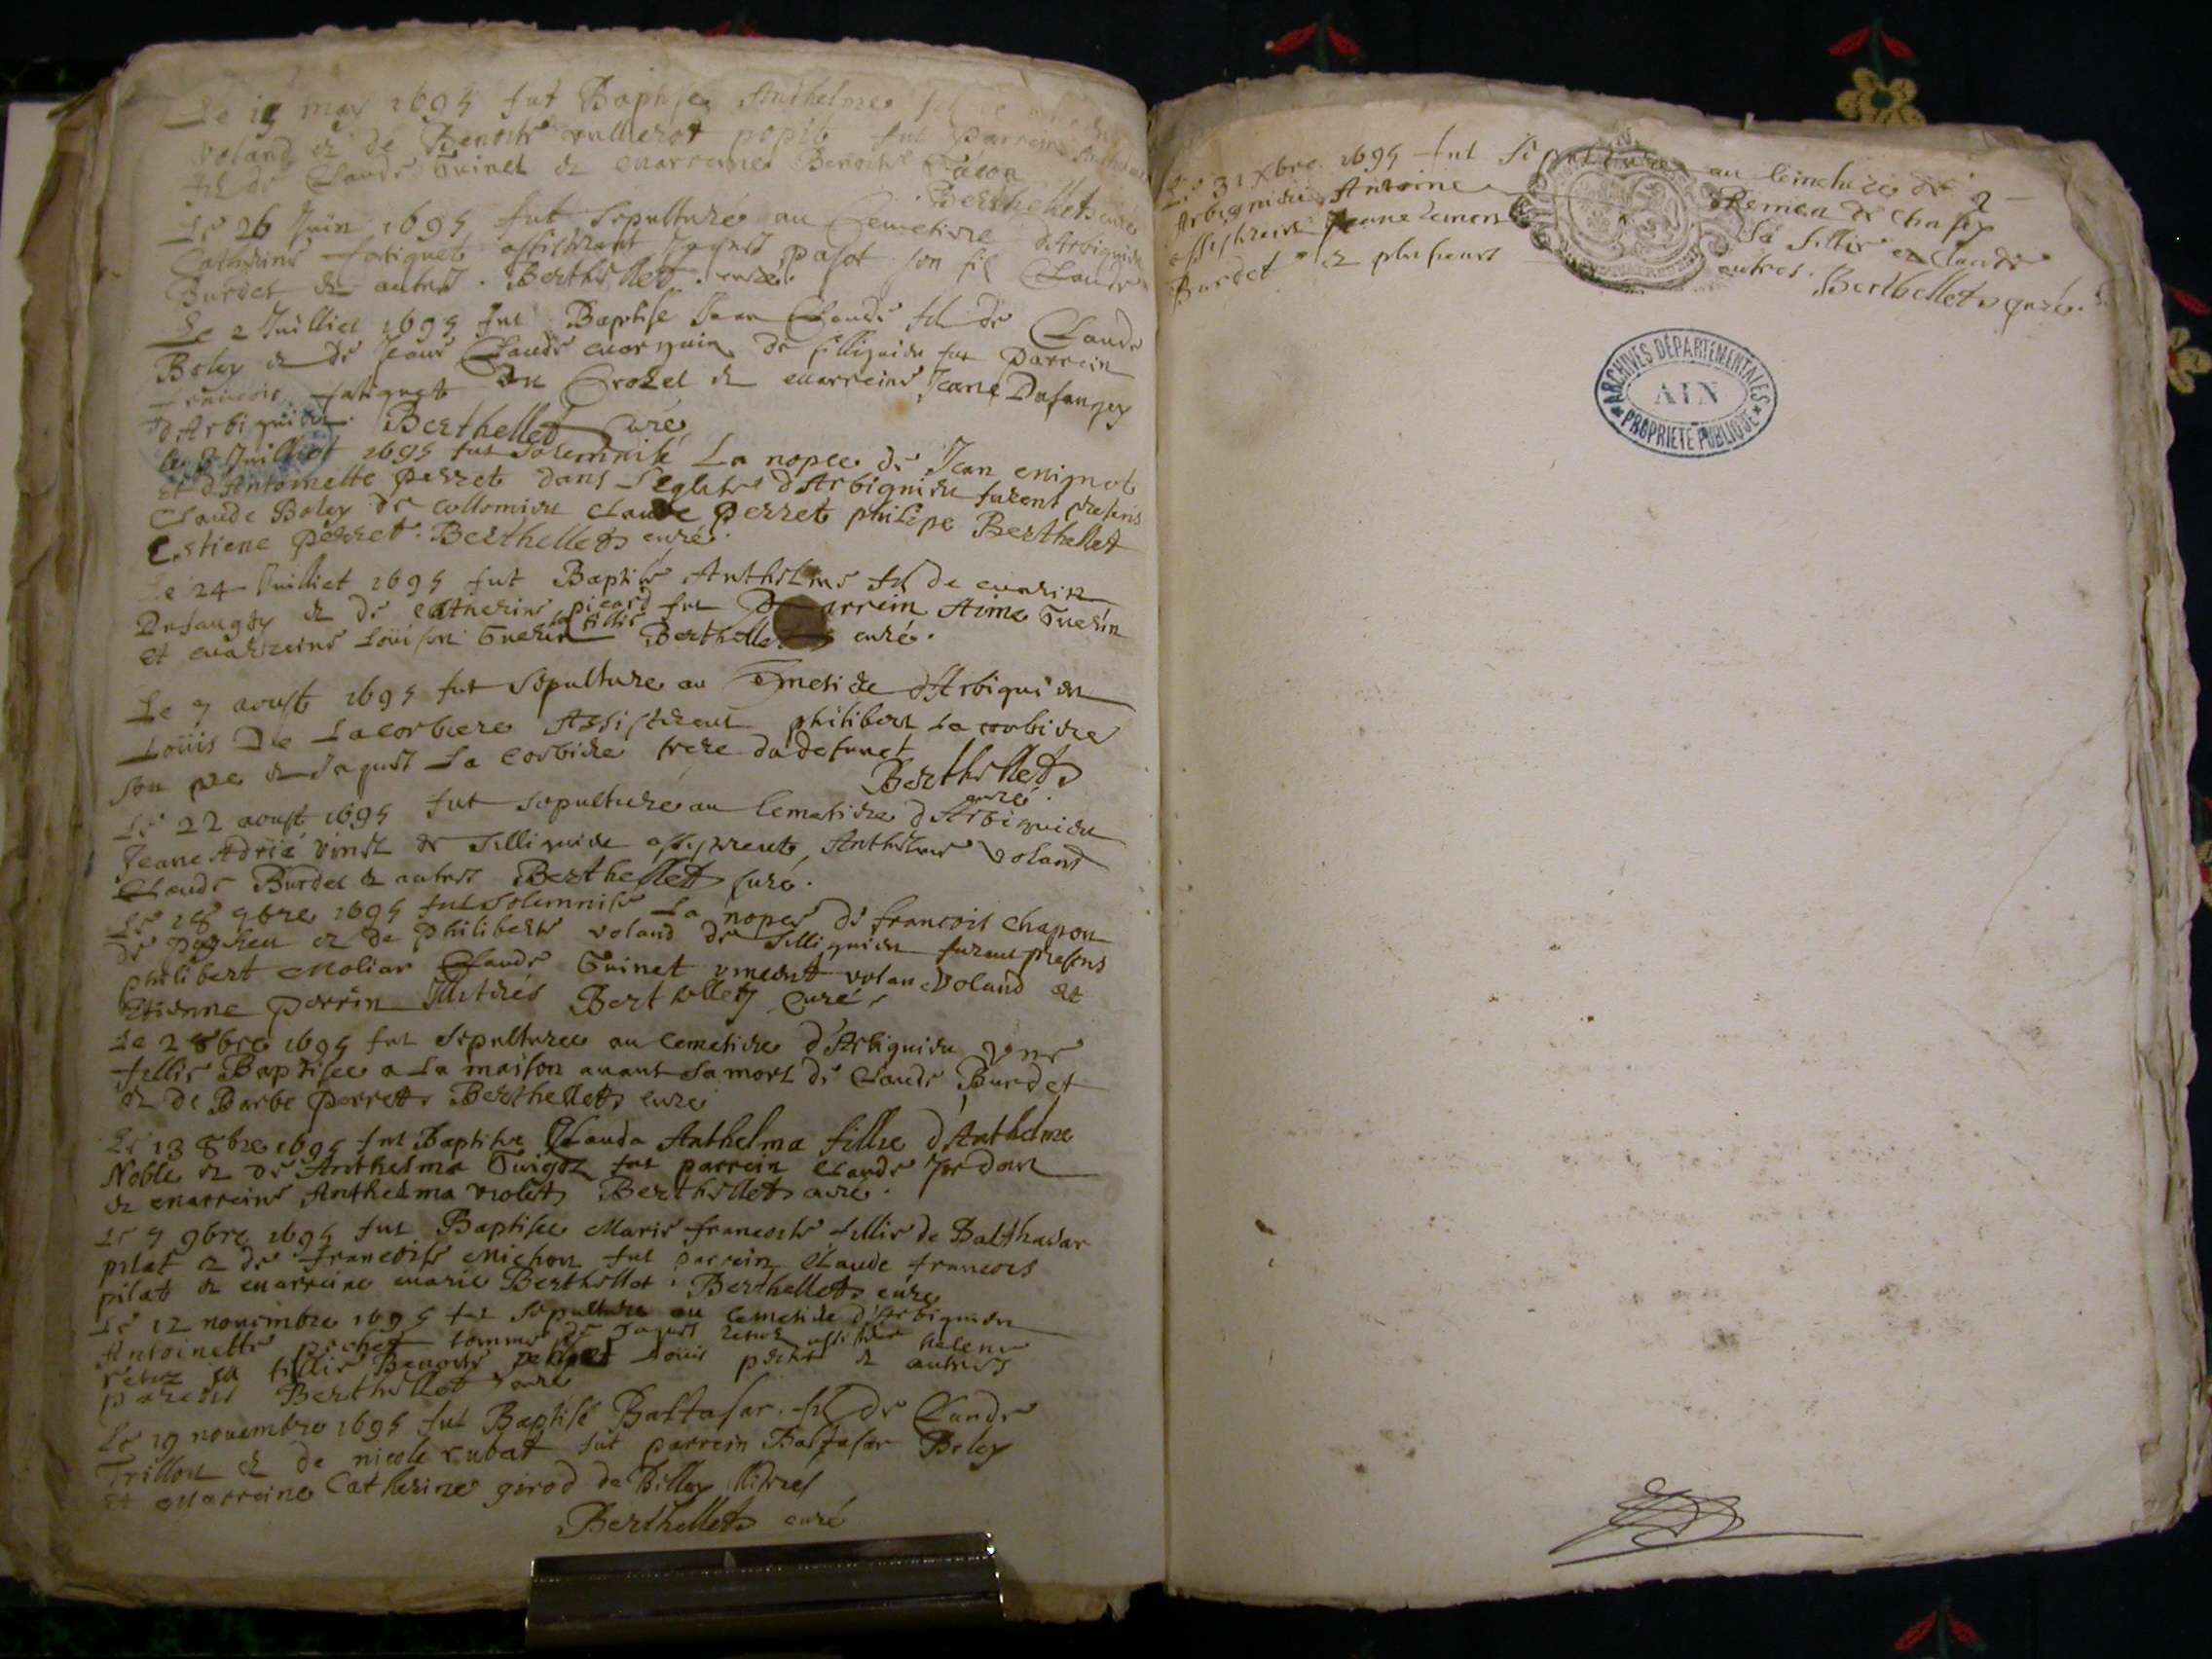 Le 15 may 1695 fut Baptisé Anthelme
voland et de Benoite vullierot popit fut Parrein
fil de Claude Guinet et marreine Benoite
Berthellet curé
Le 26 Juin 1695 fut sepulturé au Cemetiere d'Arbignieu
Catherine fatiguet assistirent Jaques pasot son fil Claude
Burdet et autres. Berthellet curé
Le 2 Juilliet 1695 fut Baptisé Jean Claude fil de Claude
Beley et de Jeane Claude de silignieu fut Parrein
francois fatiguet du Crozet et marreine Jeane Dufangey
d'Arbignieu. Berthellet curé
le 8 Juilliet 1695 fut solemnisé La nopce de Jean mignot
et d'Antoinette perret dans L'eglise d'Arbignieu furent presens
Claude Beley de collomieu claude perret philipe Berthellet
Estiene perret. Berthellet curé.
Le 24 Juilliet 1695 fut Baptisé Anthelme fil de marin
Dufangey et de catherine picard fut Parrein Aime Guerin
et marreine Loüison Guerin sa fillie Berthellet curé.
Le 7 aoust 1695 fut sepulture au Cemetiere d'Arbignieu
Loüis De Lacorbiere Assistirent philibert La corbiere
son pere et Jaques La corbiere frere du defunct
Berthellet
curé.
Le 22 aoust 1695 fut sepulturé au Cemetiere d'Arbignieu
Jeane Adrié de sillignieu assistirent Anthelme voland
Claude Burdet et autres Berthellet curé.
Le 18 9bre 1695 fut solemnisé La nopce de francois Chapon
de peyzieu et de philiberte voland de sillignieu furent presens
philibert Moliar Claude Guinet vincent volan Voland et
Etienne perrin Illitrés Berthellet Curé
Le 2 8bre 1695 fut sepulturee au Cemetiere d'Arbignieu une
fillie Baptisee a La maison avant sa mort de Claude Burdet
et de Barbe perret. Berthellet curé
Le 13 8bre 1695 fut Baptisee Clauda Anthelma fillie d'Anthelme
Noble et de Anthelma Guigoz fut parrein Claude Jordan
et marreine Anthelma violet Berthellet curé.
Le 7 9bre 1695 fut Baptisee Marie francoise fillie de Balthasar
pilat et de francoise michon fut parrein Claude francois
pilat et marreine marie Berthellet. Berthellet curé
Le 12 novembre 1695 fut sepulture au Cemetiere d'Arbignieu
Antoinette pochet femme de Jaques assistirent helene
sa fillie Benoite Loüis et autres
parens Berthellet curé
Le 19 novembre 1695 fut Baptisé Baltasar fil de Claude
Trillon et de nicole rubat fut parrein Baltasar Beley
et marreine Catherine girod de Billey Illitres
Berthellet curé
Le 31 Xbre 1695 fut sepulture au Cemetiere d'
Arbignieu Antoine Remen de Chasey
assistirent Jeane sa fillie et Claude
Burdet et plusieurs autres. Berthellet curé.
ARCHIVES DÉPARTEMENTALES
AIN
PROPRIÉTÉ PUBLIQUE